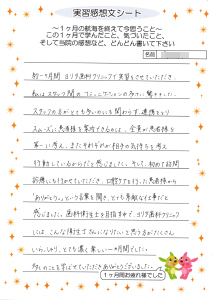 実習感想文シート
～1ヶ月の航海を終えて今思うこと～
この1ヶ月で学んだこと、気づいたこと、
そして当院の感想など、どんどん書いて下さい
氏名
約一ヶ月間 ヨリタ歯科クリニックで実習をさせていただき、
私はスタッフ間のコミュニケーションの
スタッフの方がとても多いのにも関わらず、連携をとり
スムーズに患者様を案内できるのは、全員が患者様を
第一に考え、またそれぞれが相手の気持ちを考え
行動しているからだと感じました。そして、初めて訪問
診療にも行かせていただき、口腔ケアを行った患者様から
「ありがとう。」という言葉を聞き、とても素敵な仕事だと
感じました。歯科衛生士を目指す中で、ヨリタ歯科クリニック
には、こんな衛生士さんになりたいと思う方がたくさん
いらっしゃり、とても濃く楽しい一ヶ月間でした。
多くのことを学ばせていただきありがとうございました。
1ヶ月間お疲れ様でした